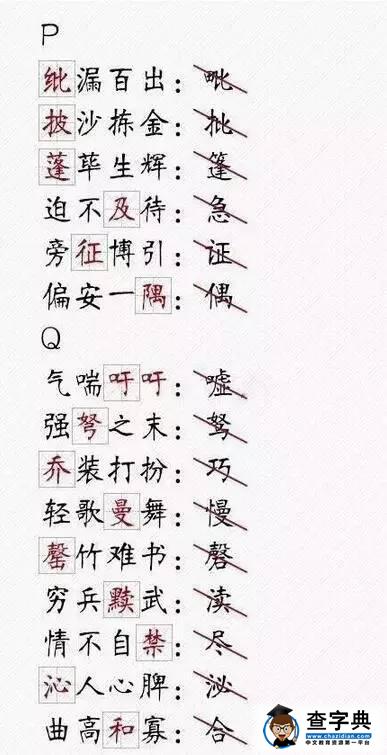 P
纰漏百出：毗
披沙拣金：批
蓬荜生辉：篷
迫不及待：急
旁征博引：证
偏安一隅：偶
Q
气喘吁吁：嘘
强弩之末：驽
乔装打扮：巧
轻歌曼舞：慢
罄竹难书：磬
穷兵黩武：渎
情不自禁：尽
沁人心脾：泌
曲高和寡：合
查字典
www.chazidian.com
中文教育资源第一平台